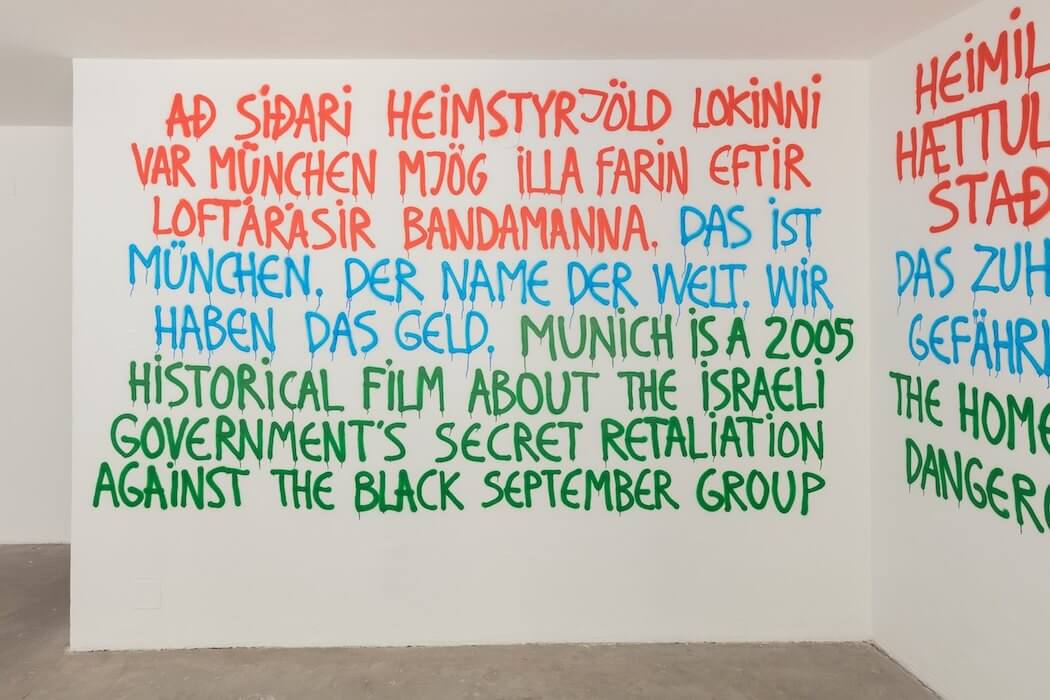 AÐ SÍÐARI HEIMSTYRJÖLD LOKINNI
VAR MÜNCHEN MJÖG ILLA FARIN EFTIR
LOFTÁRÁSIR BANDAMANNA. DAS IST
MÜNCHEN. DER NAME DER WELT. WIR
HABEN DAS GELD. MUNICH IS A 2005
HISTORICAL FILM ABOUT THE ISRAELI
GOVERNMENT'S SECRET RETALIATION
AGAINST THE BLACK SEPTEMBER GROUP
HEIMIL
HÆTTUL
STAÐ
DAS ZUH
GEFÄHR
THE HOME
DANGER